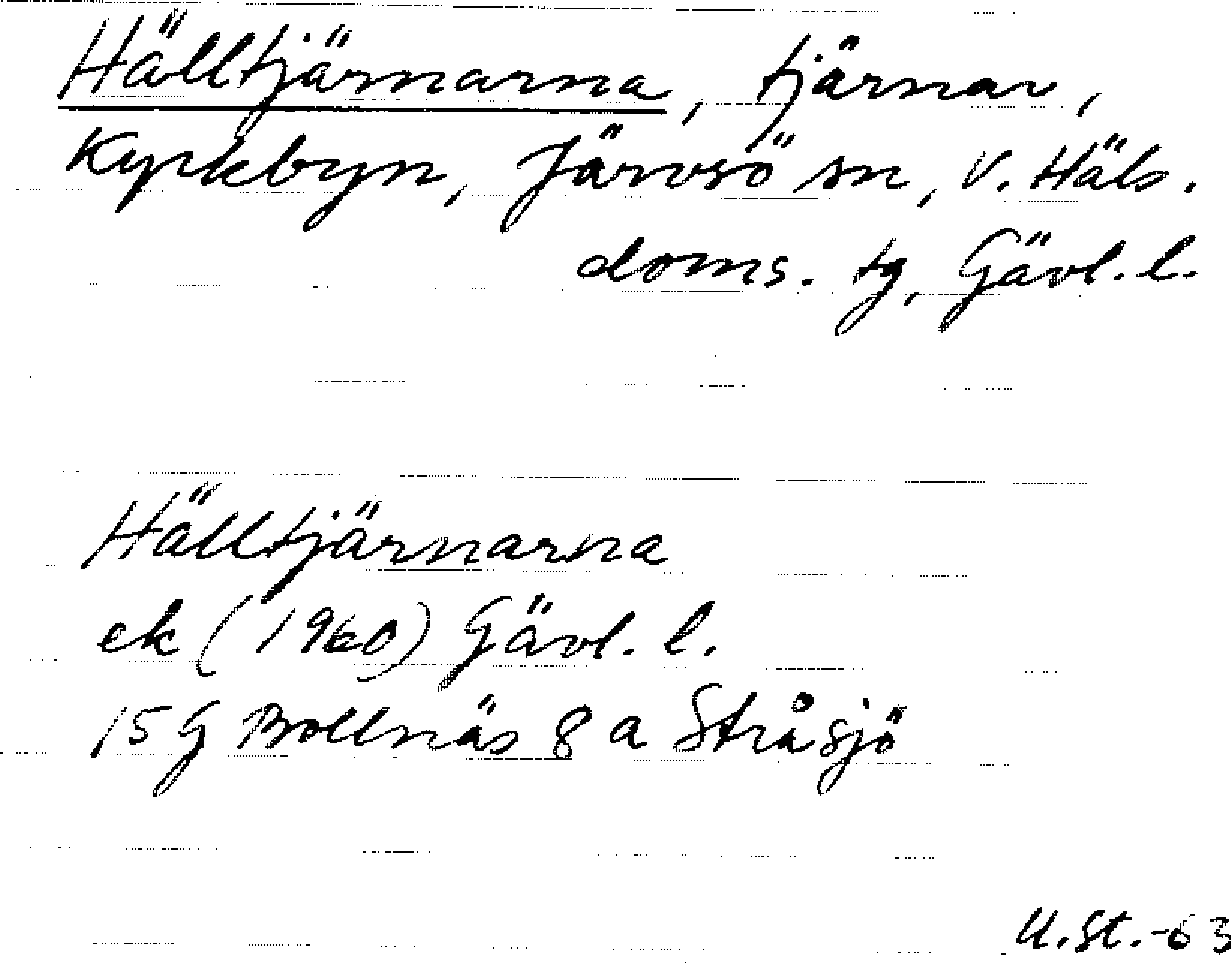 Hälltjärnarna, tjärnar,
Kyrkbyn, Järvsö sn, V. Häls.
doms. tg, Gävl. l.
Hälltjärnarna
ek (1960) Gävl. l.
15 G Bollnäs 8 a Stråsjö
U.St.-63